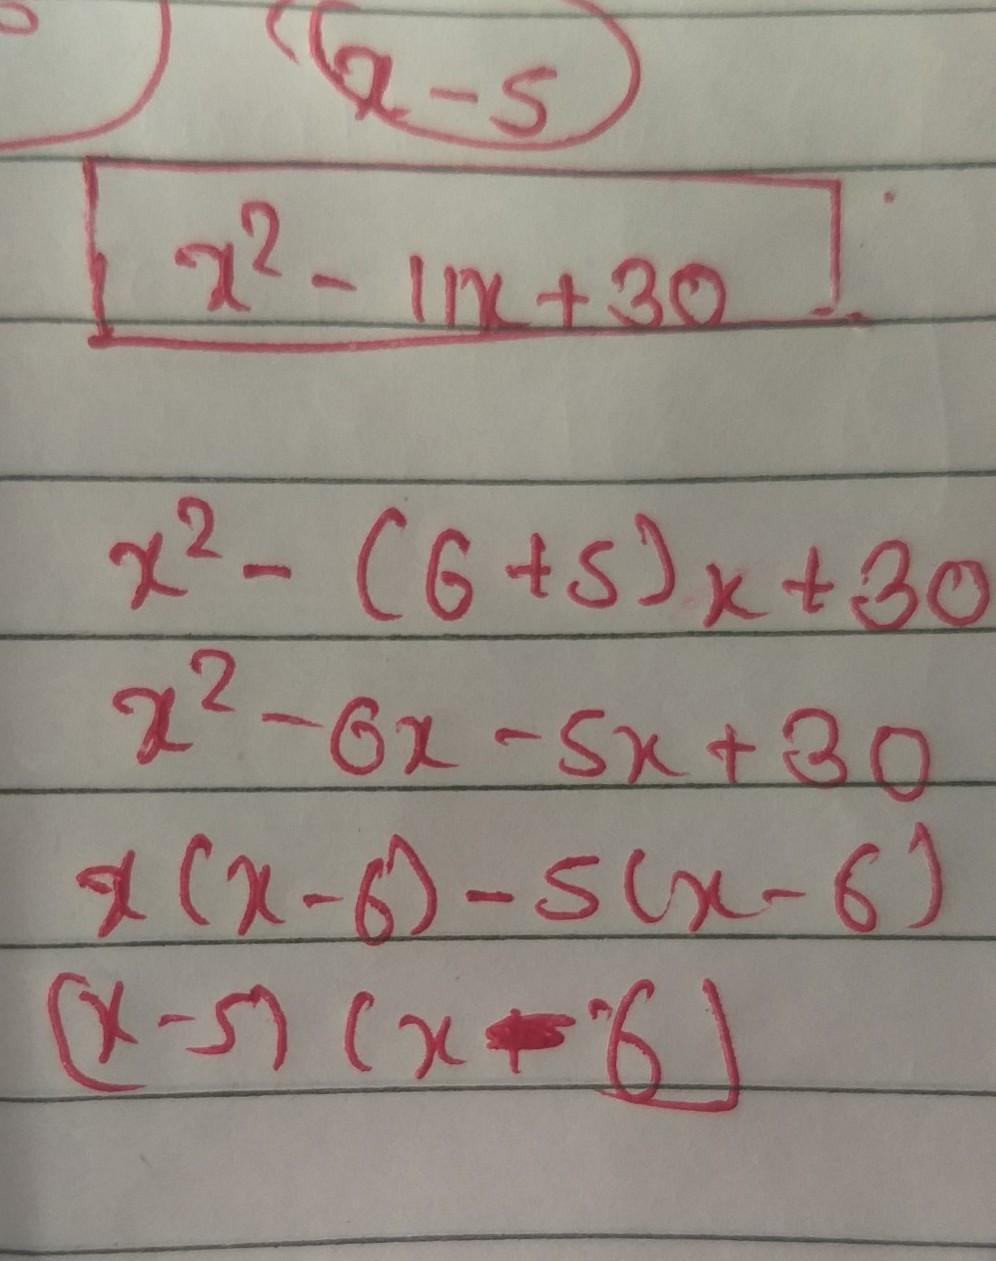 (x-5
x² - 11x + 30
x² - (6+5)x + 30
x² - 6x - 5x + 30
x(x-6) - 5(x-6)
(x-5) (x - 6)